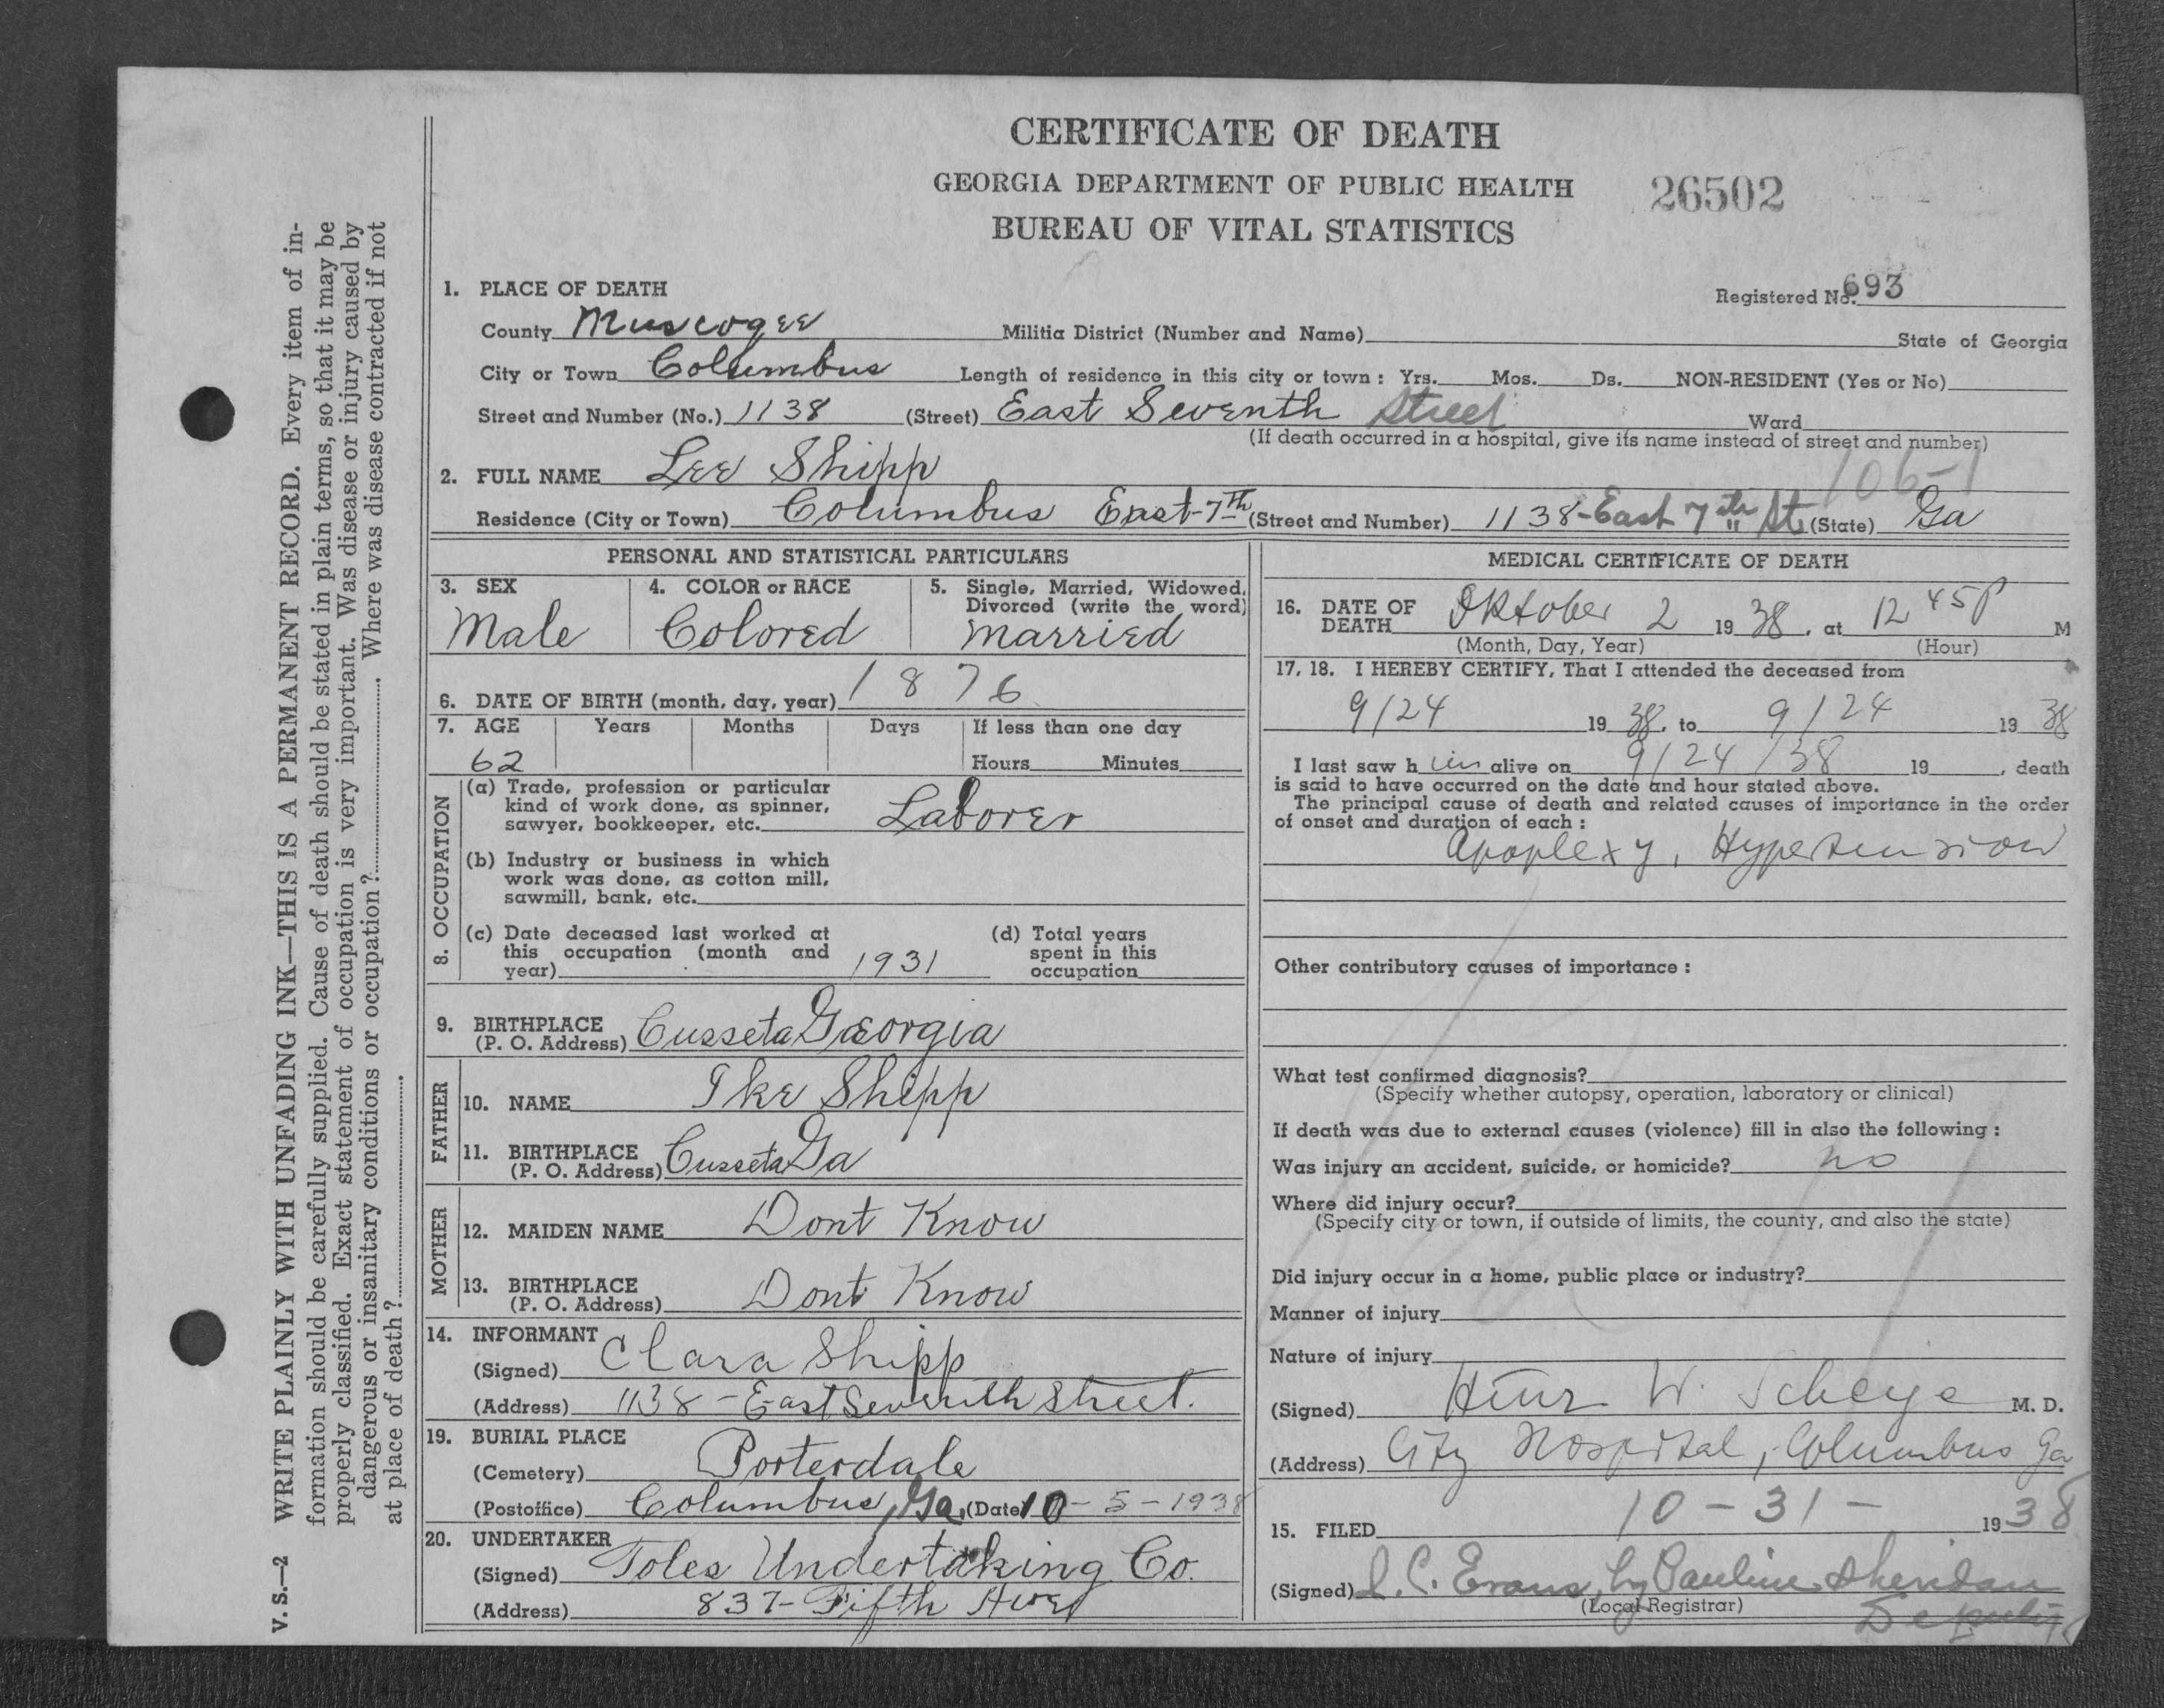 CERTIFICATE OF DEATH
GEORGIA DEPARTMENT OF PUBLIC HEALTH 26502
BUREAU OF VITAL STATISTICS
1. PLACE OF DEATH Registered No. 693
County Muscogee Militia District (Number and Name) State of Georgia
City or Town Columbus Length of residence in this city or town: Yrs. Mos. Ds. NON-RESIDENT (Yes or No)
Street and Number (No.) 1138 (Street) East Seventh Street Ward
(If death occurred in a hospital, give its name instead of street and number)
106-1
2. FULL NAME Lee Shipp
Residence (City or Town) Columbus East 7th (Street and Number) 1138-East 7th St. (State) Ga
PERSONAL AND STATISTICAL PARTICULARS
3. SEX Male
4. COLOR or RACE Colored
5. Single, Married, Widowed, Divorced (write the word) Married
6. DATE OF BIRTH (month, day, year) 1876
7. AGE Years Months Days If less than one day
62 Hours Minutes
8. OCCUPATION
(a) Trade, profession or particular
kind of work done, as spinner,
sawyer, bookkeeper, etc. Laborer
(b) Industry or business in which
work was done, as cotton mill,
sawmill, bank, etc.
(c) Date deceased last worked at
this occupation (month and
year) 1931
(d) Total years
spent in this
occupation
9. BIRTHPLACE
(P. O. Address) Cusseta Georgia
FATHER
10. NAME Ike Shipp
11. BIRTHPLACE
(P. O. Address) Cusseta Ga
MOTHER
12. MAIDEN NAME Dont Know
13. BIRTHPLACE
(P. O. Address) Dont Know
14. INFORMANT
(Signed) Clara Shipp
(Address) 1138 - East Seventh Street.
19. BURIAL PLACE
(Cemetery) Porterdale
(Postoffice) Columbus, Ga. (Date) 10-5-1938
20. UNDERTAKER
(Signed) Toles Undertaking Co.
(Address) 837- Fifth Ave
MEDICAL CERTIFICATE OF DEATH
16. DATE OF
DEATH Oktober 2 1938, at 12 45 P M
(Month, Day, Year) (Hour)
17, 18. I HEREBY CERTIFY, That I attended the deceased from
9/24 1938, to 9/24 1938
I last saw him alive on 9/24/38 19 , death
is said to have occurred on the date and hour stated above.
The principal cause of death and related causes of importance in the order
of onset and duration of each:
Apoplexy, Hypertension
Other contributory causes of importance:
What test confirmed diagnosis?
(Specify whether autopsy, operation, laboratory or clinical)
If death was due to external causes (violence) fill in also the following:
Was injury an accident, suicide, or homicide? no
Where did injury occur?
(Specify city or town, if outside of limits, the county, and also the state)
Did injury occur in a home, public place or industry?
Manner of injury
Nature of injury
(Signed) W. Scheye M. D.
(Address) City Hospital, Columbus Ga
15. FILED 10-31- 1938
(Signed) Evans, by Pauline Sheridan
(Local Registrar) Deputy
V. S.—2 WRITE PLAINLY WITH UNFADING INK—THIS IS A PERMANENT RECORD. Every item of in-
formation should be carefully supplied. Cause of death should be stated in plain terms, so that it may be
properly classified. Exact statement of occupation is very important. Was disease or injury caused by
dangerous or insanitary conditions or occupation? Where was disease contracted if not
at place of death?